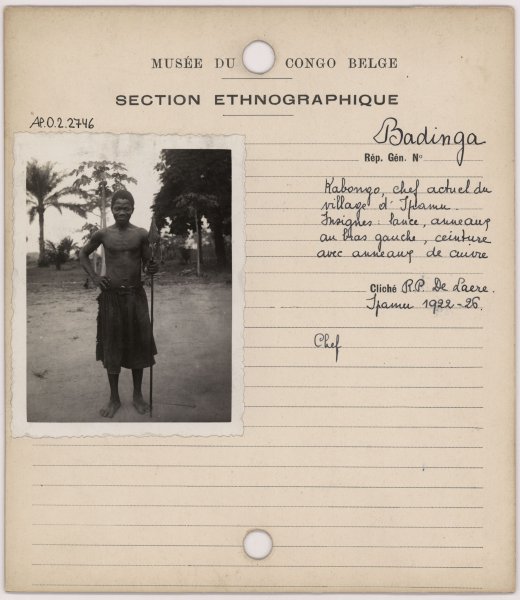 MUSÉE DU CONGO BELGE
SECTION ETHNOGRAPHIQUE
AP.0.2.2746
Badinga
Rép. Gén. N°
Kabongo, chef actuel du
village d'Ipamu.
Insignes: lance, anneaux
au bras gauche, ceinture
avec anneaux de cuivre
Cliché R.P. De Laere.
Ipamu 1922-26.
Chef